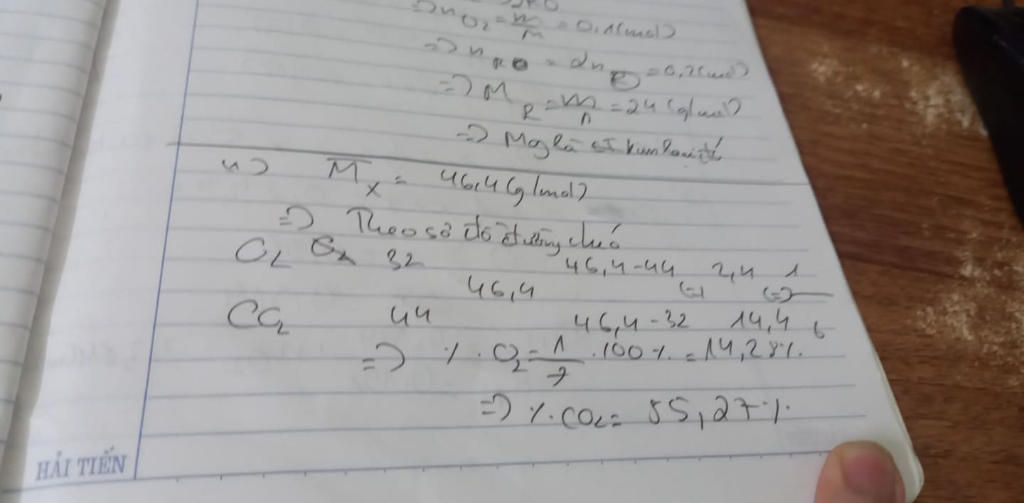 => n O₂ = m/M = 0,1(mol)
=> n RO = 2n O₂ = 0,2(mol)
=> M R = m/n = 24 (g/mol)
=> Mg là
4) M̅ₓ = 46,4(g/mol)
=> Theo sơ đồ đường chéo
O₂ 32 46,4-44 2,4 1
46,4 (=) (=)
CO₂ 44 46,4-32 14,4 6
=> %.O₂ = 1/7 .100% = 14,28%.
=> %.CO₂ = 85,27%.
HẢI TIẾN